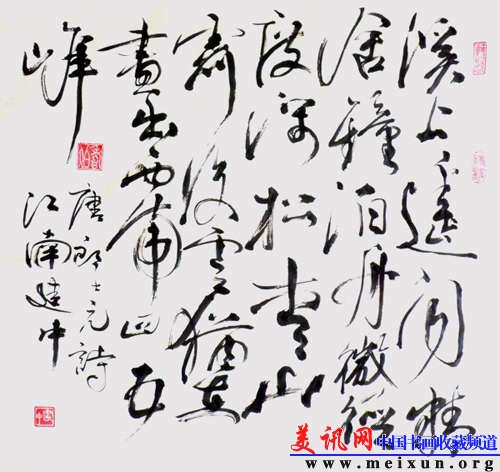 溪上遙聞精
舍鐘泊舟微徑
度深松青山
霽後雲猶在
畫出西南四五
峰
唐郎士元詩
江南建中
美讯网 中国书画收藏频道
www.meixun.org